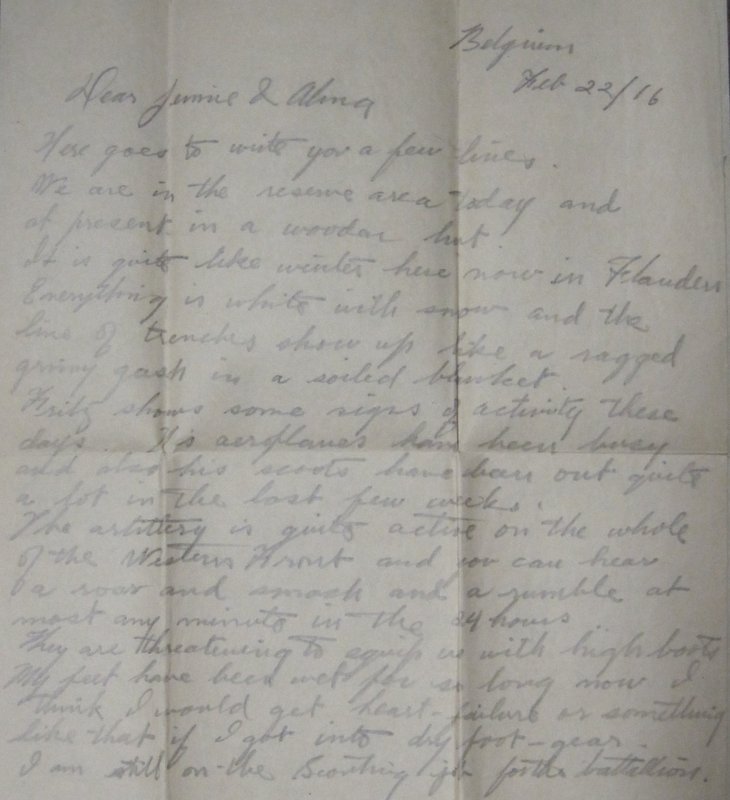 Belgium
Feb 22/16
Dear Jennie & Alma
Here goes to write you a few lines.
We are in the reserve area today and
at present in a wooden hut.
It is quite like winter here now in Flanders
Everything is white with snow and the
line of trenches show up like a ragged
grimy gash in a soiled blanket.
Fritz shows some signs of activity these
days. His aeroplanes have been busy
and also his scouts have been out quite
a lot in the last few weeks.
The artillery is quite active on the whole
of the Western Front and you can hear
a roar and smash and a rumble at
most any minute in the 24 hours
They are threatening to equip us with high boots
My feet have been wet for so long now I
think I would get heart-failure or something
like that if I got into dry foot-gear.
I am still on the Scouting for the battalion.